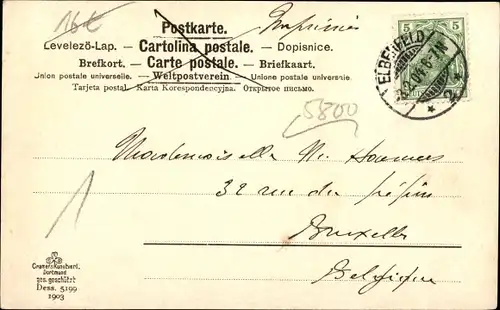 16€
Postkarte.
Imprimés
Levelező-Lap. — Cartolina postale. — Dopisnice.
Brefkort. — Carte postale. — Briefkaart.
Union postale universelle. — Weltpostverein. — Unione postale universale.
Tarjeta postal. Karta Korespondencyjna. Открытое письмо.
5 5
ELBERFELD
5800
Mademoiselle M.
32 rue du pépin
Bruxelles
Belgique
1
Cramers Kunstanst.
Dortmund
ges. geschützt
Dess. 5199
1903